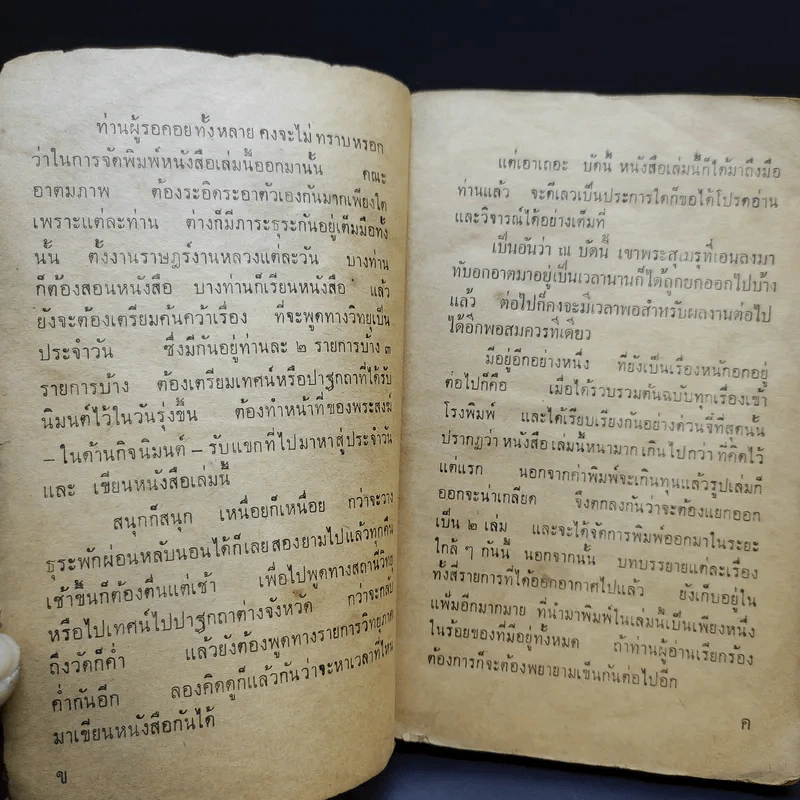 ท่านผู้รอคอยทั้งหลาย คงจะไม่ ทราบหรอก
ว่าในการจัดพิมพ์หนังสือเล่มนี้ออกมานั้น คณะ
อาตมภาพ ต้องระอิดระอาตัวเองกันมากเพียงใด
เพราะแต่ละท่าน ต่างก็มีภาระธุระกันอยู่เต็มมือทั้ง
นั้น ตั้งงานราษฎร์งานหลวงแต่ละวัน บางท่าน
ก็ต้องสอนหนังสือ บางท่านก็เรียนหนังสือ แล้ว
ยังจะต้องเตรียมค้นคว้าเรื่อง ที่จะพูดทางวิทยุเป็น
ประจำวัน ซึ่งมีกันอยู่ท่านละ ๒ รายการบ้าง ๓
รายการบ้าง ต้องเตรียมเทศน์หรือปาฐกถาที่ได้รับ
นิมนต์ไว้ในวันรุ่งขึ้น ต้องทำหน้าที่ของพระสงฆ์
– ในด้านกิจนิมนต์ – รับแขกที่ไปมาหาสู่ประจำวัน
และ เขียนหนังสือเล่มนี้
สนุกก็สนุก เหนื่อยก็เหนื่อย กว่าจะวาง
ธุระพักผ่อนหลับนอนได้ก็เลยสองยามไปแล้วทุกคืน
เช้าขึ้นก็ต้องตื่นแต่เช้า เพื่อไปพูดทางสถานีวิทยุ
หรือไปเทศน์ไปปาฐกถาต่างจังหวัด กว่าจะกลับ
ถึงวัดก็ค่ำ แล้วยังต้องพูดทางรายการวิทยุภาค
ค่ำกันอีก ลองคิดดูก็แล้วกันว่าจะหาเวลาที่ไหน
มาเขียนหนังสือกันได้
ข
แต่เอาเถอะ บัดนี้ หนังสือเล่มนี้ก็ได้มาถึงมือ
ท่านแล้ว จะดีเลวเป็นประการใดก็ขอได้โปรดอ่าน
และวิจารณ์ได้อย่างเต็มที่
เป็นอันว่า ณ บัดนี้ เขาพระสุเมรุที่เอนลงมา
ทับอกอาตมาอยู่เป็นเวลานานก็ได้ถูกยกออกไปบ้าง
แล้ว ต่อไปก็คงจะมีเวลาพอสำหรับผลงานต่อไป
ได้อีกพอสมควรทีเดียว
มีอยู่อีกอย่างหนึ่ง ที่ยังเป็นเรื่องหนักอกอยู่
ต่อไปก็คือ เมื่อได้รวบรวมต้นฉบับทุกเรื่องเข้า
โรงพิมพ์ และได้เรียบเรียงกันอย่างด่วนจี๋ที่สุดนั้น
ปรากฏว่า หนังสือ เล่มนี้หนามาก เกิน ไปกว่า ที่คิดไว้
แต่แรก นอกจากค่าพิมพ์จะเกินทุนแล้วรูปเล่มก็
ออกจะน่าเกลียด จึงตกลงกันว่าจะต้องแยกออก
เป็น ๒ เล่ม และจะได้จัดการพิมพ์ออกมาในระยะ
ใกล้ ๆ กันนี้ นอกจากนั้น บทบรรยายแต่ละเรื่อง
ทั้งสี่รายการที่ได้ออกอากาศไปแล้ว ยังเก็บอยู่ใน
แฟ้มอีกมากมาย ที่นำมาพิมพ์ในเล่มนี้เป็นเพียงหนึ่ง
ในร้อยของที่มีอยู่ทั้งหมด ถ้าท่านผู้อ่านเรียกร้อง
ต้องการก็จะต้องพยายามเข็นกันต่อไปอีก
ค